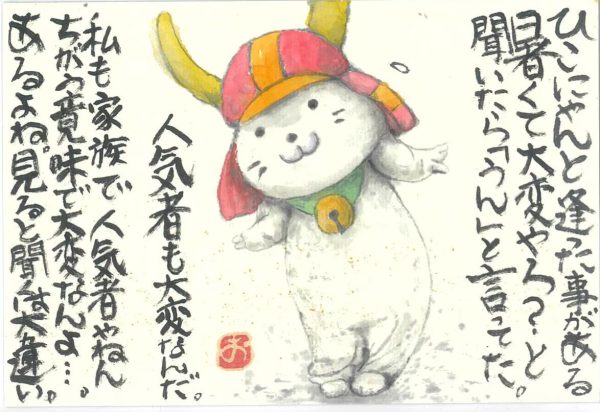 ひこにゃんと逢った事がある
暑くて大変やろ?と
聞いたら「うん」と言ってた。
人気者も大変なんだ。
私も家族で人気者やねん
ちがう意味で大変なんよ…。
あるよね。見ると聞くは大違い。
お